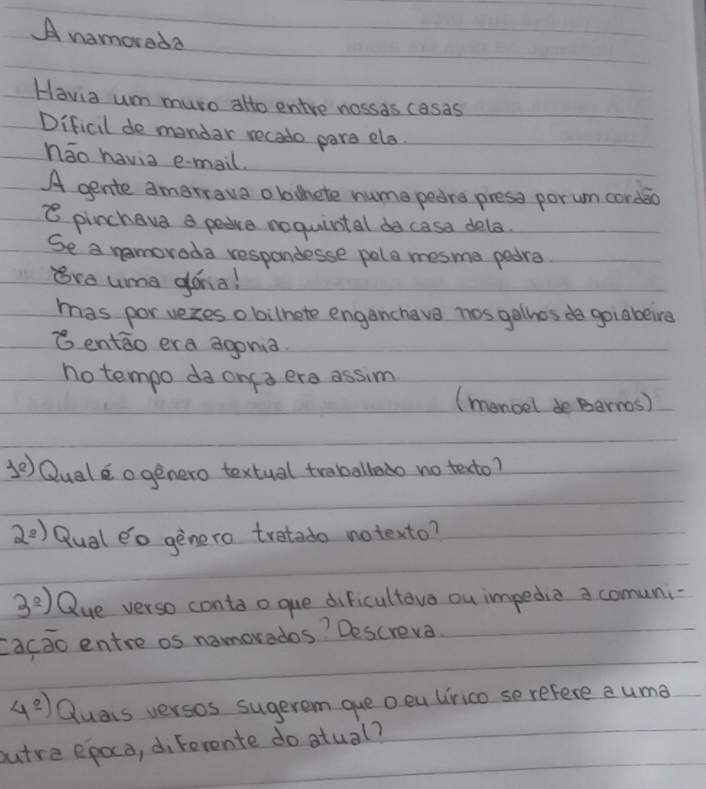 A namorada
Havia um muro alto entre nossas casas
Díficil de mandar recado para ela.
não havia e-mail.
A gente amarrava o bilhete numa pedra presa por um cordão
E pinchava a pedra no quintal da casa dela.
Se a namorada respondesse pela mesma pedra.
Era uma glória!
mas por vezes o bilhete enganchava nos galhos da goiabeira
E então era agonia.
no tempo da onça era assim.
(manoel de Barros)
1º) Qual é o gênero textual traballado no texto?
2º) Qual é o gênero tratado no texto?
3º) Que verso conta o que dificultava ou impedia a comuni-
cação entre os namorados? Descreva.
4º) Quais versos sugerem que o eu lírico se refere a uma
outra época, diferente do atual?